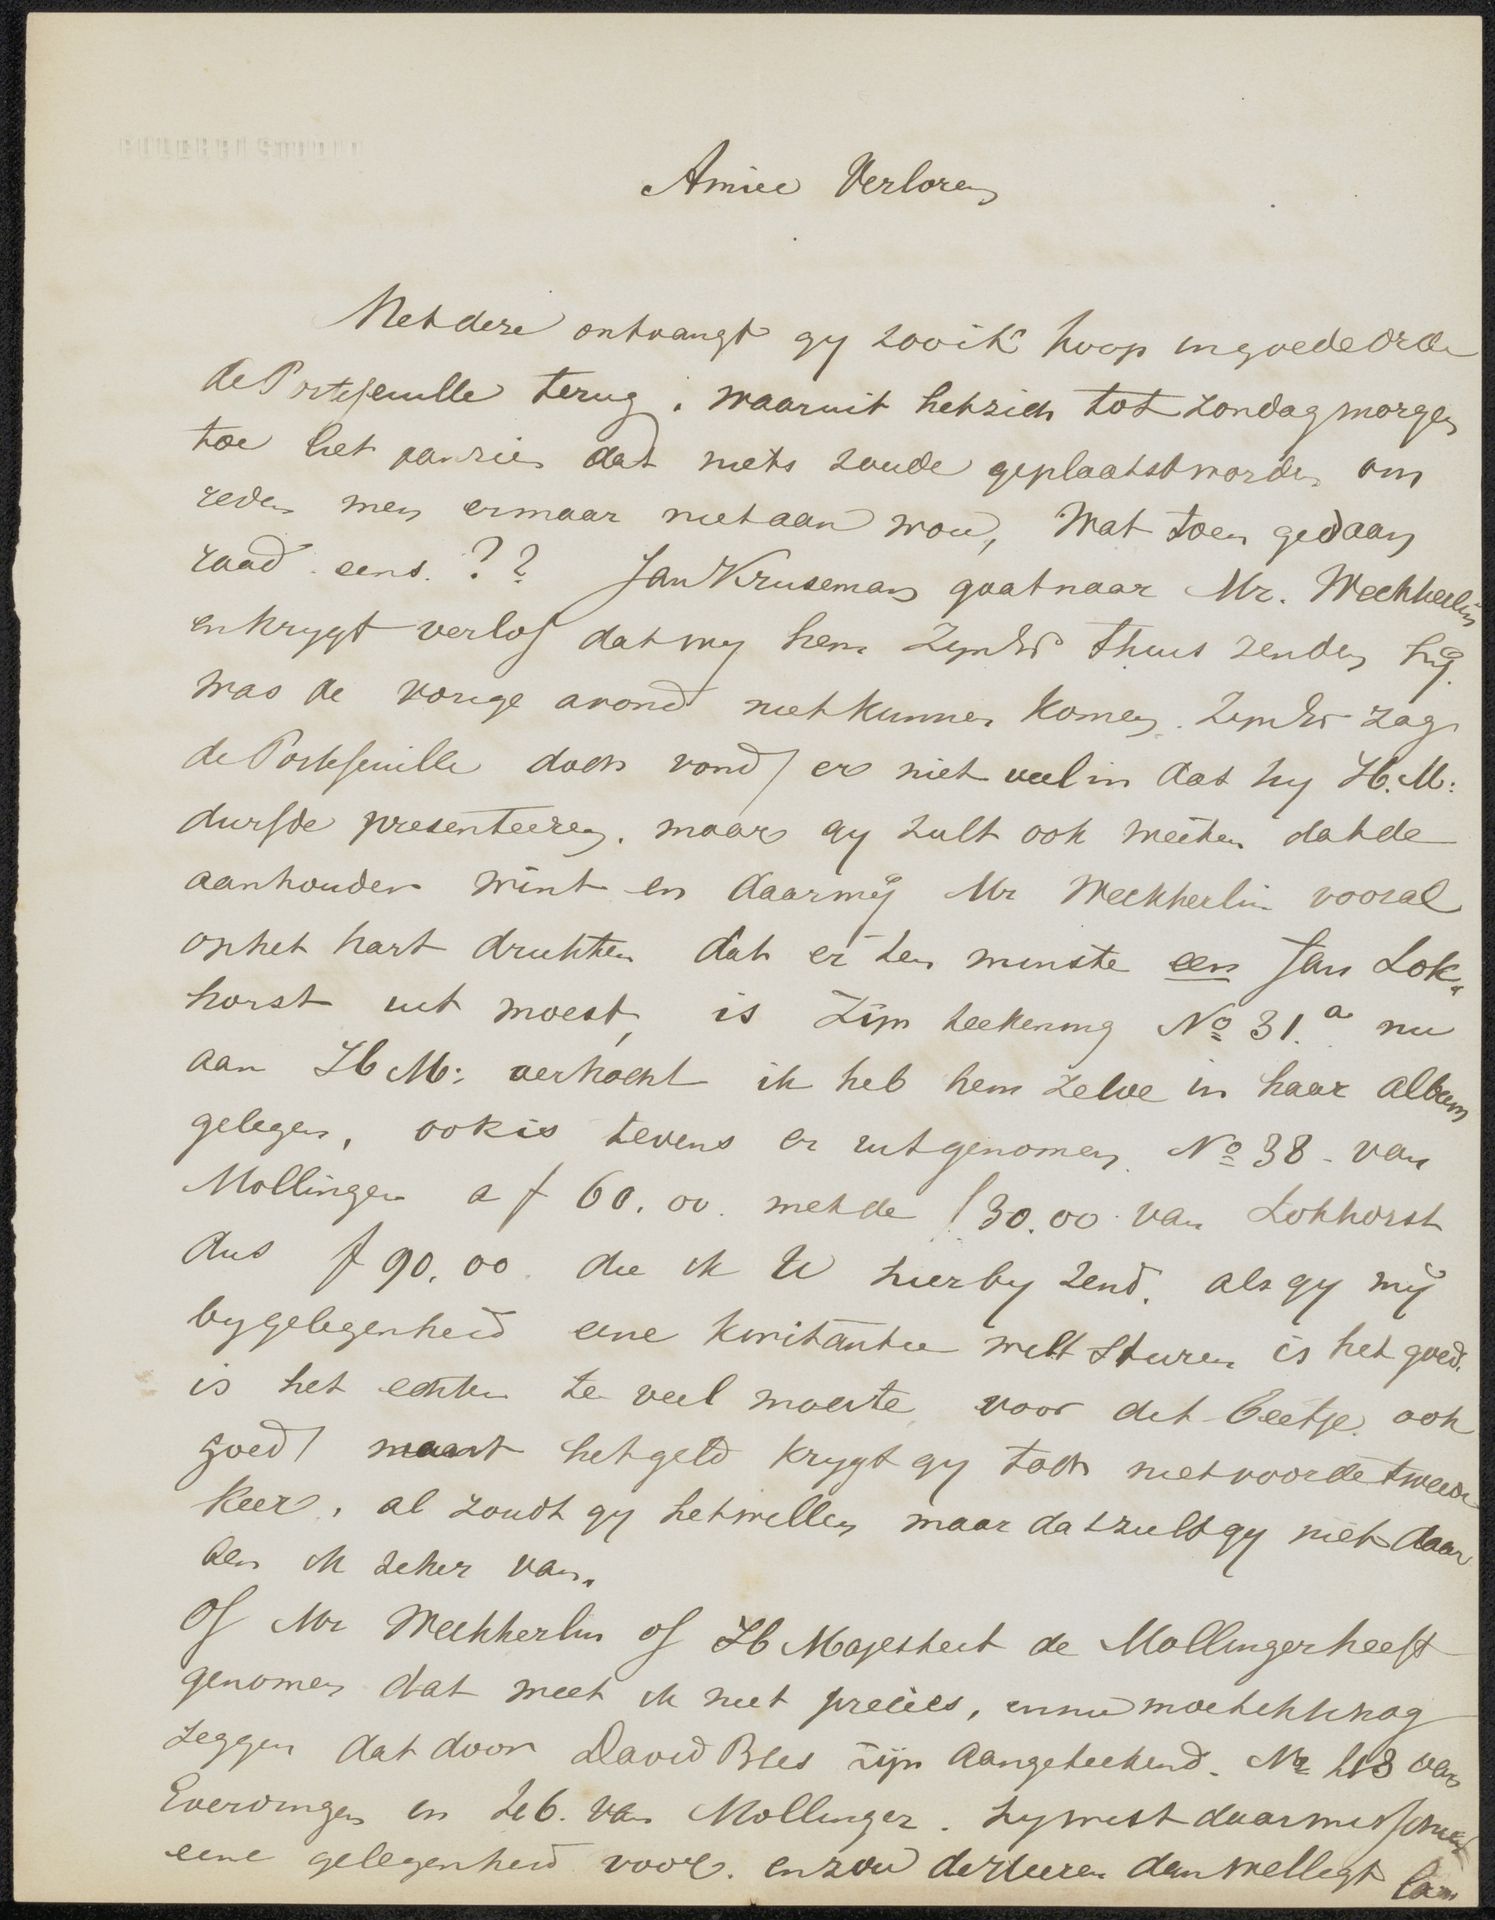 Amice Verloren
Met deze ontvangt gy zoo ik hoop in goede orde
de Portefeuille terug, waaruit het zich tot zondag morgen
toe liet aanzien dat niets zoude geplaatst worden om
reden men er maar niet aan wou, Wat toen gedaan
raad eens. ?? Jan Kruseman gaat naar Mr. Weckherlin
en krygt verlof dat wy hem ZynEd thuis zenden hij
was de vorige avond niet kunnen komen. ZynEd zag
de Portefeuille doch vond er niet veel in dat hy H.M:
durfde presenteeren. maar gy zult ook weeten dat de
aanhouder wint en daar wij Mr Weckherlin vooral
op het hart drukten dat er ten minste een Jan Lok„
horst uit moest, is Zijn teekening No 31.a nu
aan H M: verkocht ik heb hem zelve in haar album
gelegen, ook is tevens er uitgenomen No 38 - van
Mollinger a f 60.00. met de f 30.00 van Lokhorst
dus f 90.00. die ik U hierby zend. als gy mij
by gelegenheid eene kwitantie wilt sturen is het goed.
is het echter te veel moeite voor dit beetje ook
goed maar het geld krygt gy toch niet voor de tweede
keer, al zoudt gy het willen maar dat zult gy niet daar
ben ik zeker van.
Of Mr Weckherlin of H Majesteit de Mollinger heeft
genomen dat weet ik niet precies, en nu moet ik U nog
zeggen dat door David Bles zijn aangeteekend. No 113 van
Everdingen en 26. van Mollinger. hy wist daar misschien
eene gelegenheid voor. en zou de Heeren dan wellegt